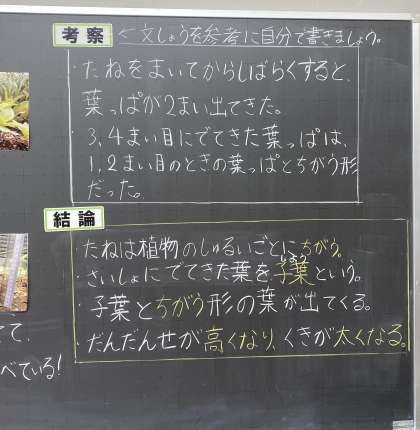 考察 ← 文しょうを参考に自分で書きましょう。
・たねをまいてからしばらくすると、
葉っぱが2まい出てきた。
・3,4まい目にでてきた葉っぱは、
1,2まい目のときの葉っぱとちがう形
だった。
結論
・たねは植物のしゅるいごとにちがう。
・さいしょにでてきた葉を子葉という。
しよう
・子葉とちがう形の葉が出てくる。
・だんだんせが高くなり、くきが太くなる。
て、
べている!